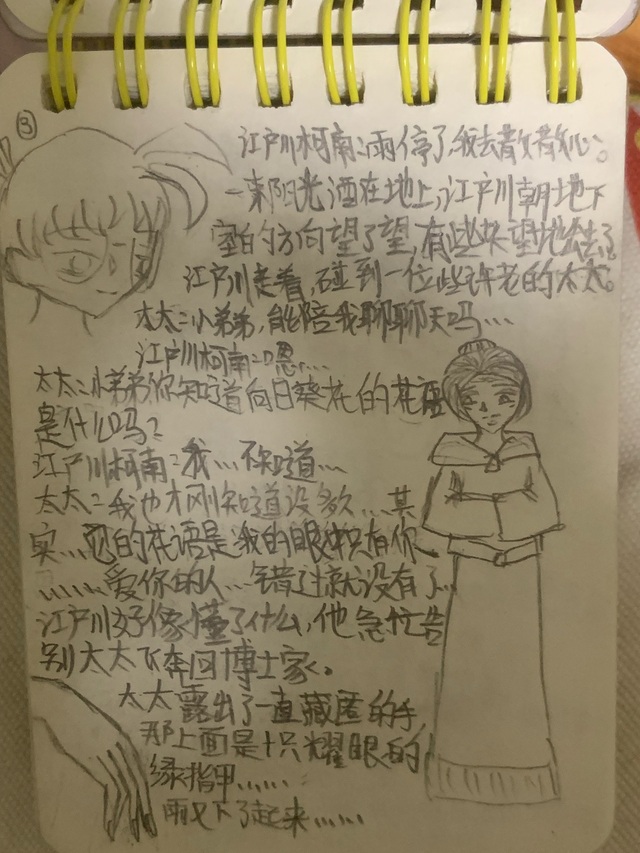 ③
江户川柯南:雨停了,我去散散心。
一束阳光洒在地上,江户川朝地下
室的方向望了望,有些失望地走了
江户川走着,碰到一位些许老的太太。
太太:小弟弟,能陪我聊聊天吗…
江户川柯南:嗯……
太太:小弟弟你知道向日葵花的花语
是什么吗?
江户川柯南:我…不知道…
太太:我也才刚知道没多久……其
实…它的花语是我的眼中只有你
……爱你的人…错过就没有了…
江户川好像懂了什么,他急忙告
别太太飞奔回博士家。
太太露出了一直藏匿的手,
那上面是十只耀眼的
绿指甲……
雨又下了起来……